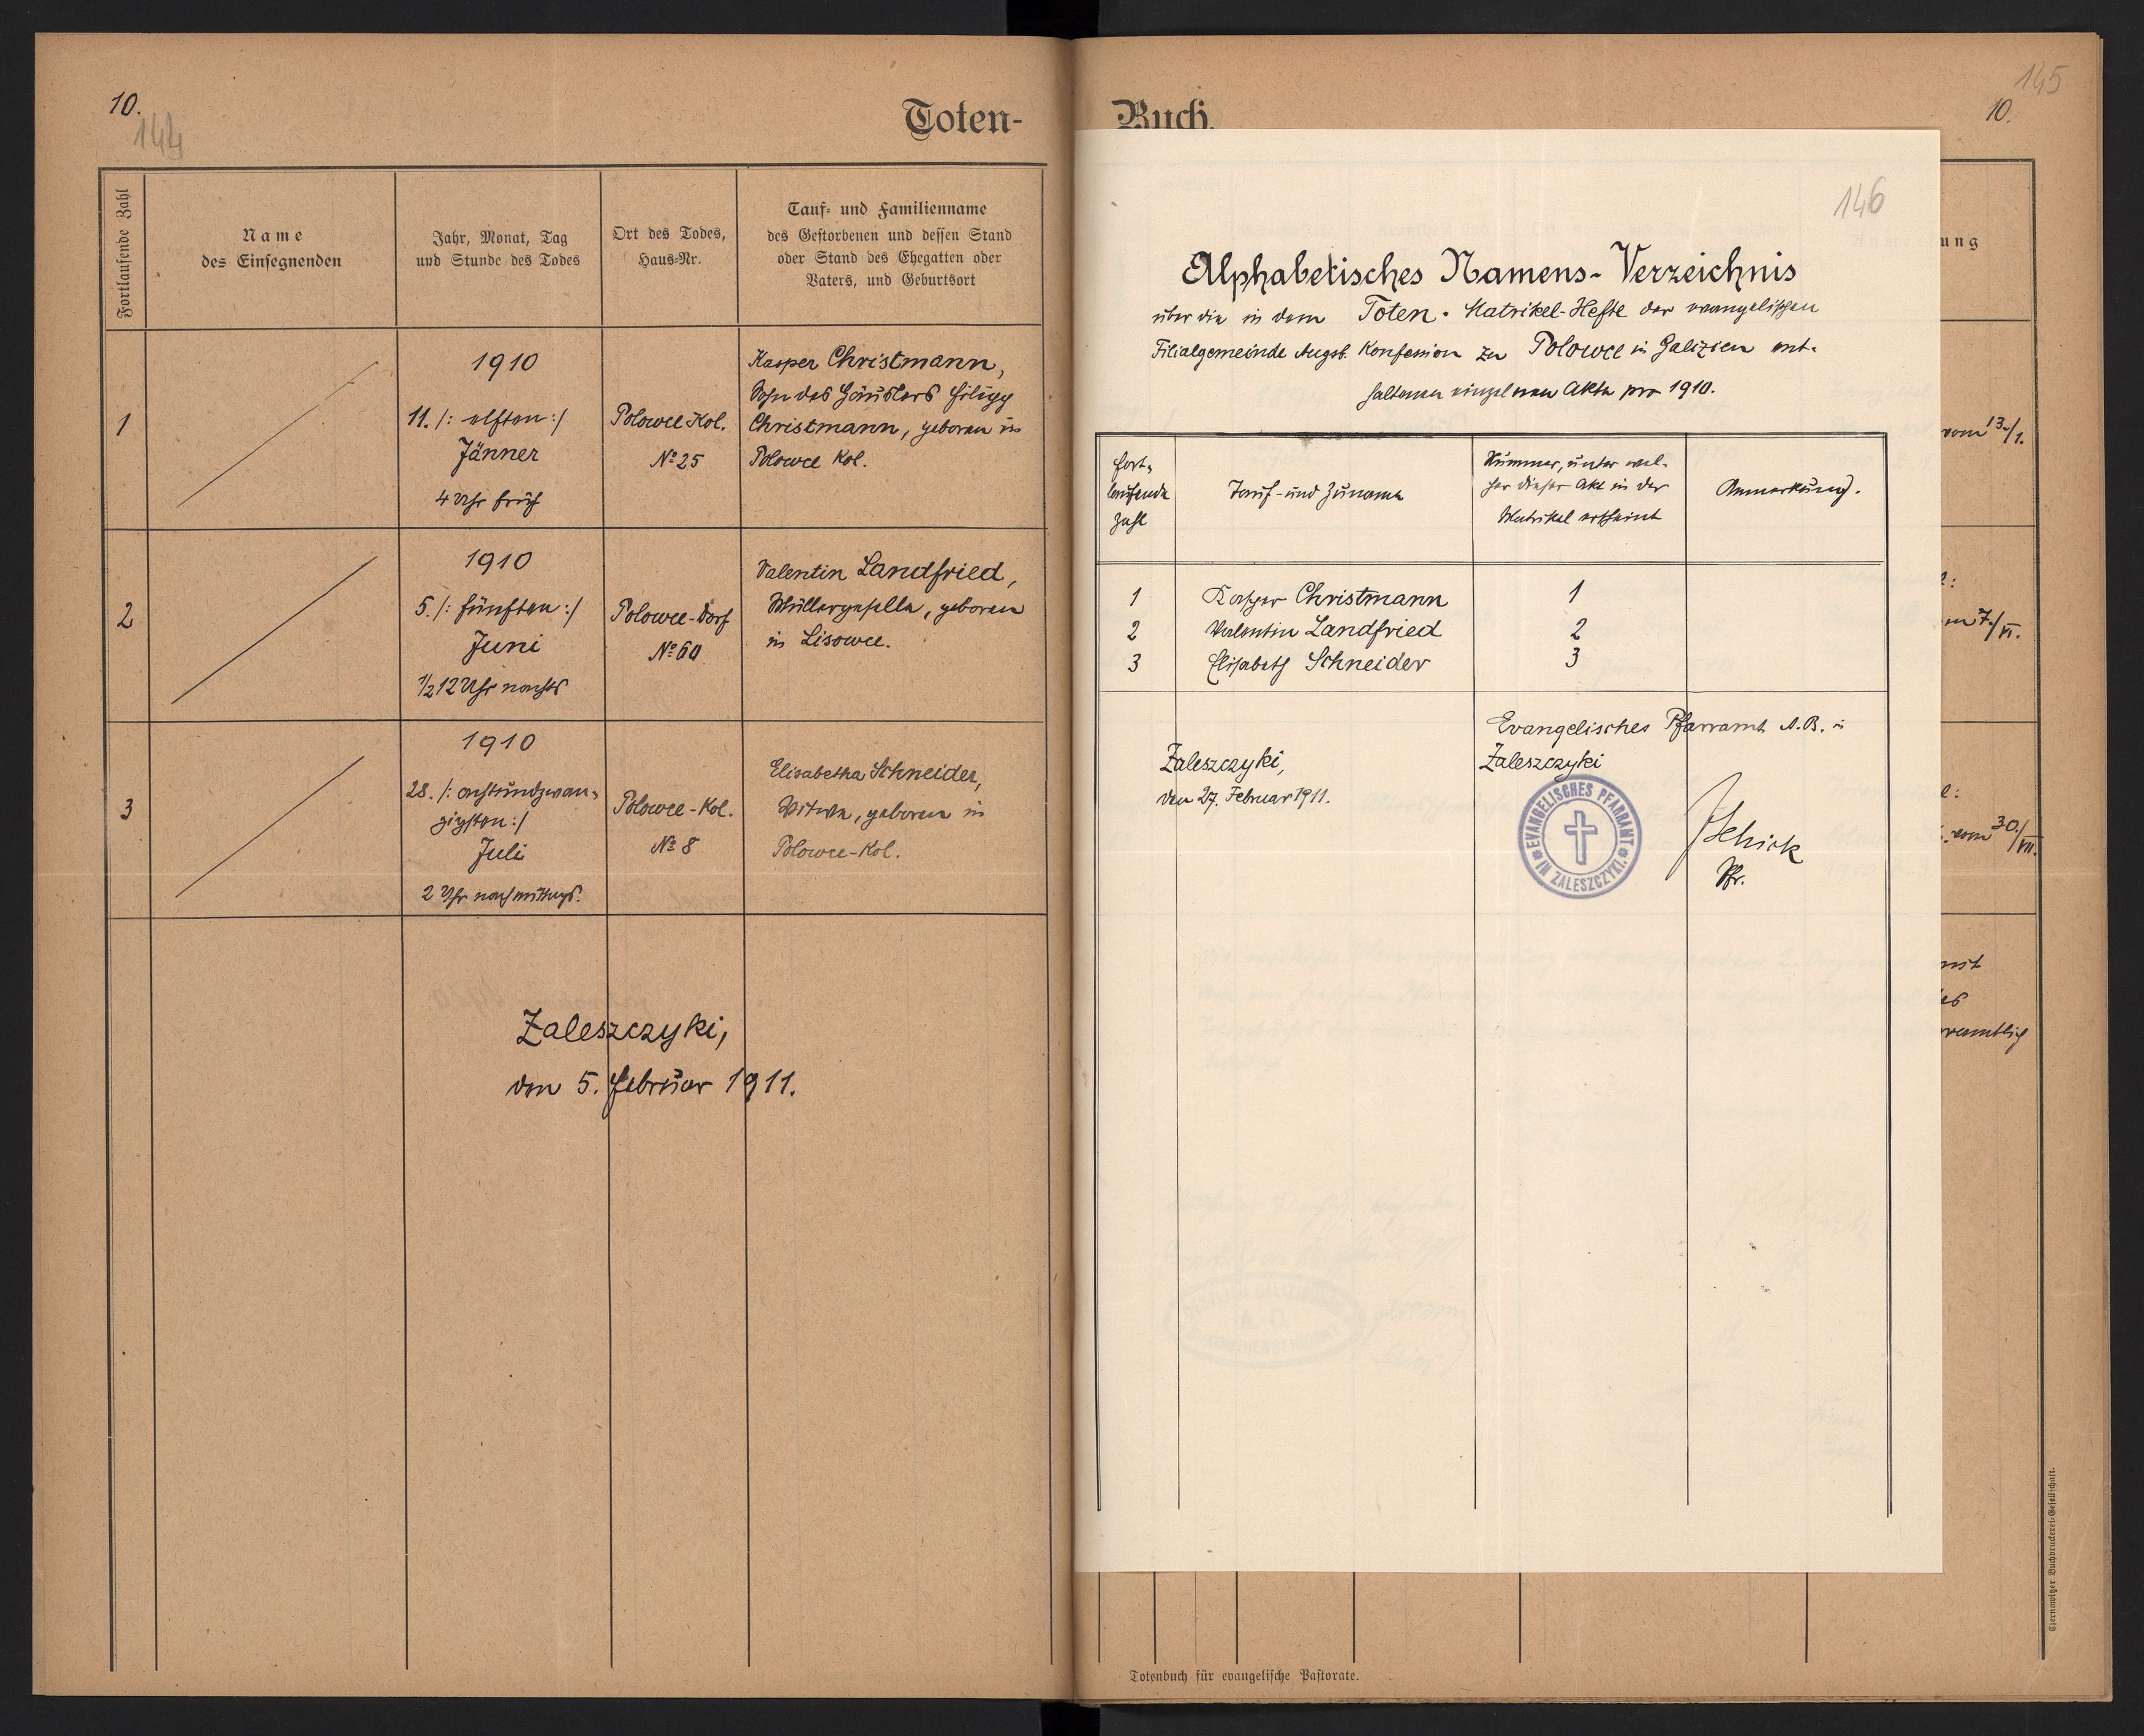 10.
144
Toten-
Fortlaufende Zahl
Name
des Einsegnenden
Jahr, Monat, Tag
und Stunde des Todes
Ort des Todes,
Haus-Nr.
Tauf- und Familienname
des Gestorbenen und dessen Stand
oder Stand des Ehegatten oder
Vaters, und Geburtsort
1
1910
11. /: elften :/
Jänner
4 Uhr früh
Polowce Kol.
№ 25
Kasper Christmann,
Sohn des Häuslers Filipp
Christmann, geboren in
Polowce Kol.
2
1910
5. /: fünften :/
Juni
1/2 12 Uhr nachts
Polowce-Dorf
№ 60
Valentin Landfried,
Müllergeselle, geboren
in Lisowce.
3
1910
28. /: achtundzwan-
zigsten :/
Juli
2 Uhr nachmittags.
Polowce-Kol.
№ 8
Elisabetha Schneider,
Witwe, geboren in
Polowce-Kol.
Zaleszczyki,
den 5. Februar 1911.
Buch.
145
10.
146
Alphabetisches Namens-Verzeichnis
über die in dem Toten-Matrikel-Hefte der evangelischen
Filialgemeinde Augsb. Konfession zu Polowce in Galizien ent-
haltenen einzelnen Akte pro 1910.
Fort-
laufende
Zahl
Tauf- und Zuname
Nummer, unter wel-
cher dieser Akt in der
Matrikel erscheint
Anmerkung.
1 Kasper Christmann 1
2 Valentin Landfried 2
3 Elisabeth Schneider 3
Zaleszczyki,
den 27. Februar 1911.
Evangelisches Pfarramt A. B. in
Zaleszczyki
EVANGELISCHES PFARRAMT
IN ZALESZCZYKI
Schick
Pfr.
ung
vom 13./1.
m 7./VI.
vom 30./VII.
Totenbuch für evangelische Pastorate.
Czernowitzer Buchdruckerei-Gesellschaft.